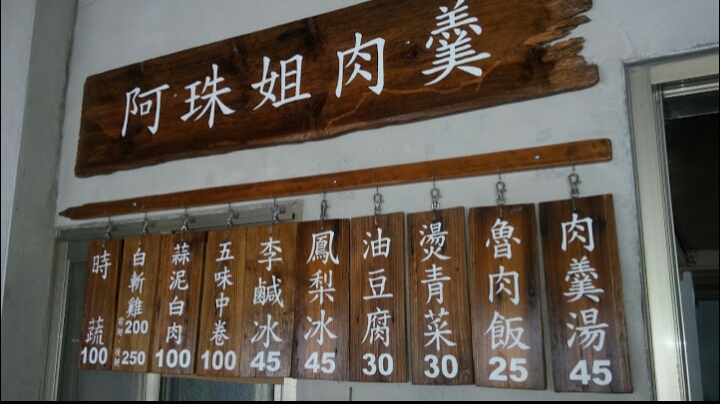 阿珠姐肉羹
肉羹湯 45
魯肉飯 25
燙青菜 30
油豆腐 30
鳳梨冰 45
李鹹冰 45
五味中卷 100
蒜泥白肉 100
白斬雞 200 250
時蔬 100